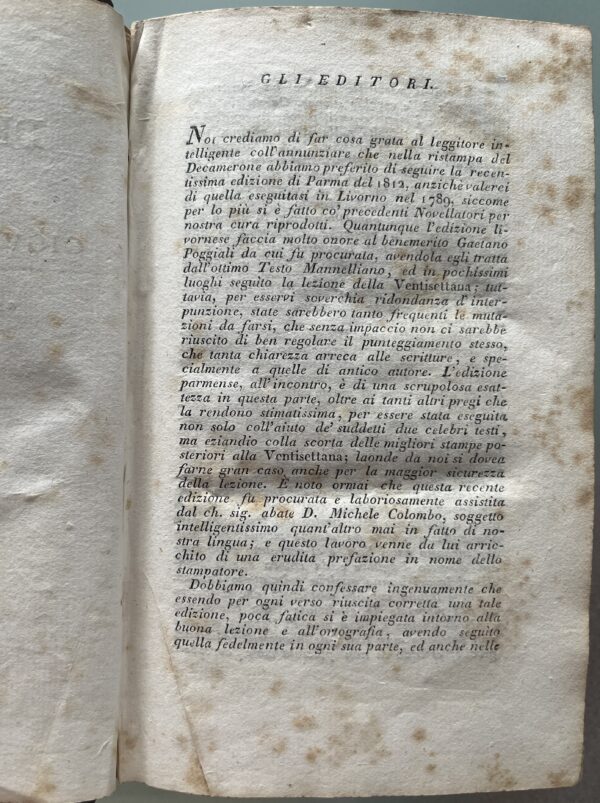 GLI EDITORI.
Noi crediamo di far cosa grata al leggitore in-
telligente coll'annunziare che nella ristampa del
Decamerone abbiamo preferito di seguire la recen-
tissima edizione di Parma del 1812, anzichè valerci
di quella eseguitasi in Livorno nel 1789, siccome
per lo più si è fatto co' precedenti Novellatori per
nostra cura riprodotti. Quantunque l'edizione li-
vornese faccia molto onore al benemerito Gaetano
Poggiali da cui fu procurata, avendola egli tratta
dall'ottimo Testo Mannelliano, ed in pochissimi
luoghi seguito la lezione della Ventisettana; tut-
tavia, per esservi soverchia ridondanza d'inter-
punzione, state sarebbero tanto frequenti le muta-
zioni da farsi, che senza impaccio non ci sarebbe
riuscito di ben regolare il punteggiamento stesso,
che tanta chiarezza arreca alle scritture, e spe-
cialmente a quelle di antico autore. L'edizione
parmense, all'incontro, è di una scrupolosa esat-
tezza in questa parte, oltre ai tanti altri pregi che
la rendono stimatissima, per essere stata eseguita
non solo coll'aiuto de' suddetti due celebri testi,
ma eziandio colla scorta delle migliori stampe po-
steriori alla Ventisettana; laonde da noi si dovea
farne gran caso anche per la maggior sicurezza
della lezione. È noto ormai che questa recente
edizione fu procurata e laboriosamente assistita
dal ch. sig. abate D. Michele Colombo, soggetto
intelligentissimo quant'altro mai in fatto di no-
stra lingua; e questo lavoro venne da lui arric-
chito di una erudita prefazione in nome dello
stampatore.
Dobbiamo quindi confessare ingenuamente che
essendo per ogni verso riuscita corretta una tale
edizione, poca fatica si è impiegata intorno alla
buona lezione e all'ortografia, avendo seguito
quella fedelmente in ogni sua parte, ed anche nelle